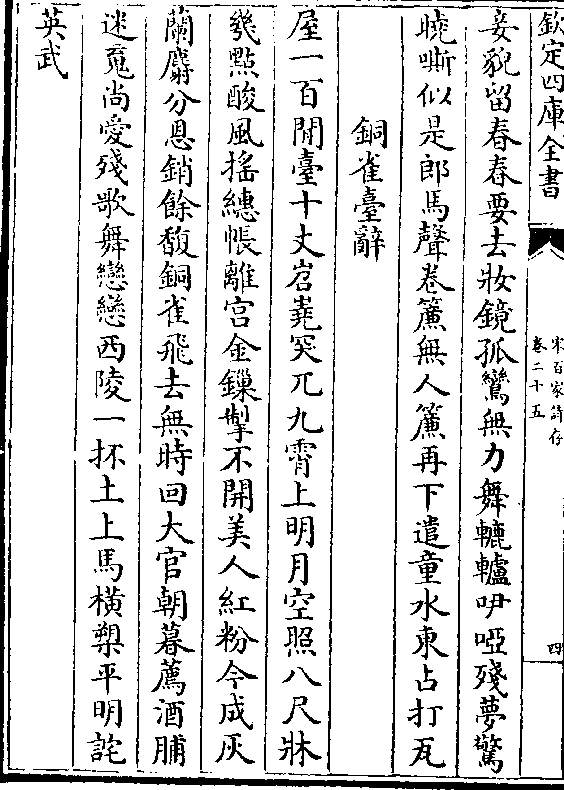 欽定四庫全書
宋百家詩存
卷二十五
四
妾貌留春春要去妝鏡孤鸞無力舞轆轤咿啞殘夢驚
曉嘶似是郎馬聲卷簾無人簾再下遣童水東占打瓦
銅雀臺辭
屋一百間臺十丈岧嶤突兀九霄上明月空照八尺牀
幾點酸風搖繐帳離宮金鏁掣不開美人紅粉今成灰
蘭麝分息銷餘馥銅雀飛去無時回大官朝暮薦酒脯
迷䰟尚愛殘歌舞戀戀西陵一抔土上馬橫槊平明詫
英武